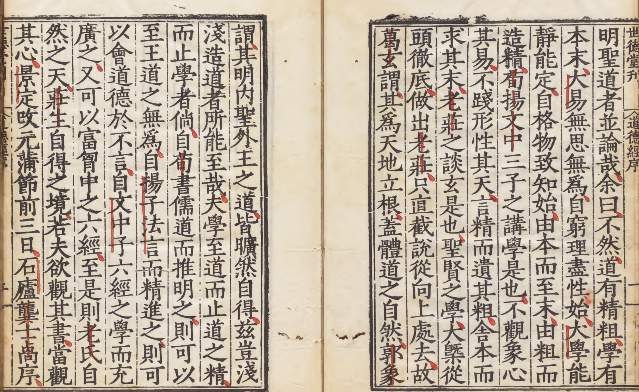 世德堂刊
道德經序
明聖道者並論哉余曰不然道有精粗學有
本末大易無思無為自窮理盡性始大學能
靜能定自格物致知始由本而至末由粗而
造精荀揚文中三子之講學是也不觀象心
其易不踐形性其天言精而遺其粗舍本而
求其末老莊之談玄是也聖賢之學大槩從
頭徹底做出老莊只直截說從向上處去故
葛玄謂其為天地立根蓋體道之自然郭象
謂其明內聖外王之道皆曠然自得茲豈淺
淺造道者所能至哉夫學至道而止道之精
而止學者倘自荀書儒道而推明之則可以
至王道之無為自揚子法言而精進之則可
以會道德於不言自文中子六經之學而充
廣之又可以富胷中之六經至是則老氏自
然之天莊生自得之境若夫欲觀其書當觀
其心景定改元蒲節前三日石廬龔士卨序